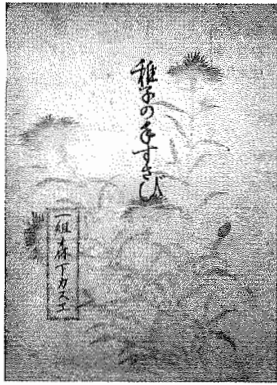 稚子の手すさび
一組 森下カズエ